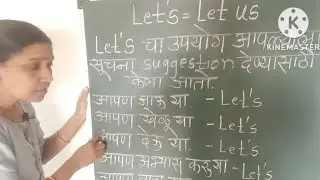 Let's = Let us
KINEMASTER
Let's चा उपयोग आपल्याला
सूचना suggestion देण्यासाठी
केला जातो.
आपण जाऊ या. - Let's
आपण खेळू या. - Let's
आपण देऊ या. - Let's
आपण अभ्यास करूया - Let's
Let's